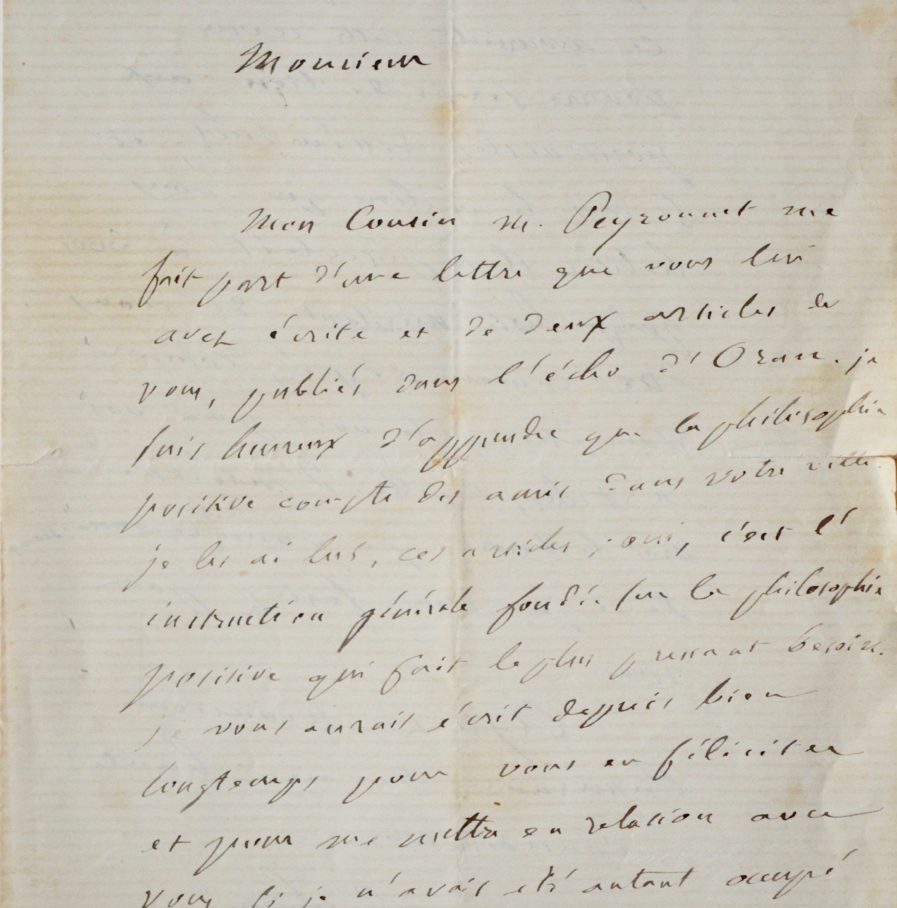 Monsieur
Mon Cousin M. Peyronnet me
fait part d'une lettre que vous lui
avez écrite et de deux articles de
vous, publiés dans l'écho d'Oran. je
suis heureux d'apprendre que la philosophie
positive compte des amis dans votre ville.
je les ai lus, ces articles; oui, c'est l'
instruction générale fondée sur la philosophie
positive qui fait le plus pressant besoin.
je vous aurais écrit depuis bien
longtemps pour vous en féliciter
et pour me mettre en relation avec
vous si je n'avais été autant occupé